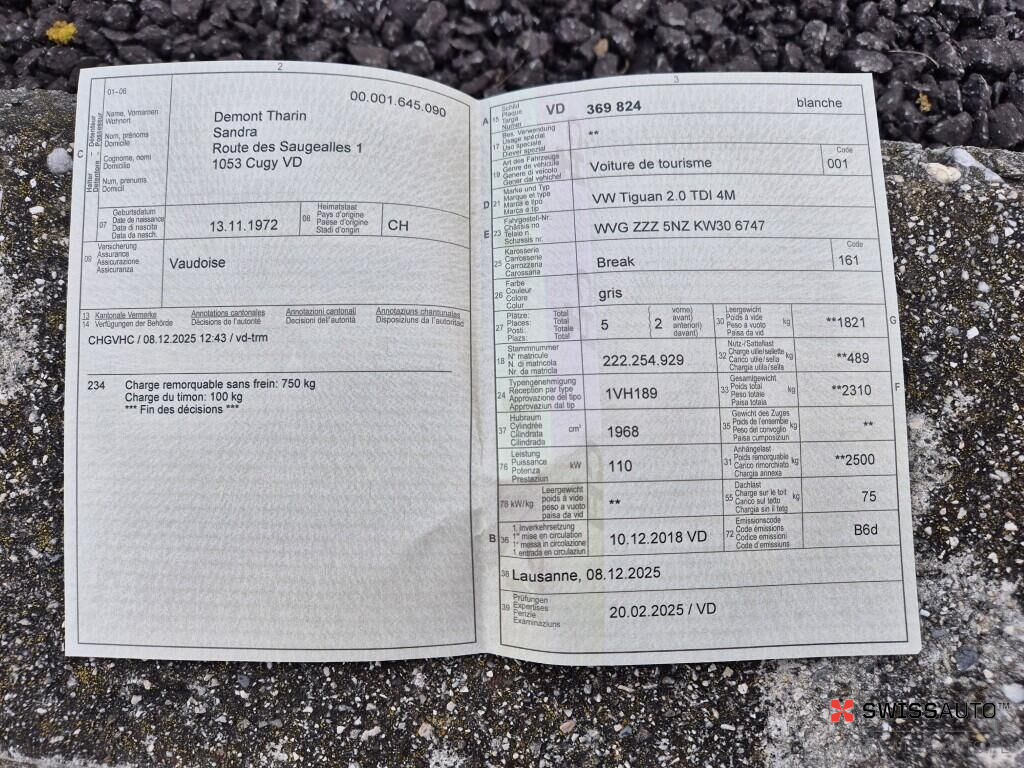 2
01-06
00.001.645.090
C
Halter - Détenteur
Detentore - Possessur
Name, Vornamen
Wohnort
Nom, prénoms
Domicile
Cognome, nomi
Domicilio
Num, prenums
Domicil
Demont Tharin
Sandra
Route des Saugealles 1
1053 Cugy VD
07 Geburtsdatum
Date de naissance
Data di nascita
Data da nasch.
13.11.1972
08 Heimatstaat
Pays d'origine
Paese d'origine
Stadi d'origin
CH
09 Versicherung
Assurance
Assicurazione
Assicuranza
Vaudoise
13 Kantonale Vermerke Annotations cantonales Annotazioni cantonali Annotaziuns chantunalas
14 Verfügungen der Behörde Décisions de l'autorité Decisioni dell'autorità Disposiziuns da l'autoritad
CHGVHC / 08.12.2025 12:43 / vd-trm
234 Charge remorquable sans frein: 750 kg
Charge du timon: 100 kg
*** Fin des décisions ***
3
A 15 Schild
Plaque
Targa
Numer
VD 369 824 blanche
17 Bes. Verwendung
Usage spécial
Uso speciale
Diever spezial
**
19 Art des Fahrzeugs
Genre de véhicule
Genere di veicolo
Gener dal vehichel
Voiture de tourisme
Code
001
D 21 Marke und Typ
Marque et type
Marca e tipo
Marca e tip
VW Tiguan 2.0 TDI 4M
E 23 Fahrgestell-Nr.
Châssis no
Telaio n.
Schassis nr.
WVG ZZZ 5NZ KW30 6747
25 Karosserie
Carrosserie
Carrozzeria
Carossaria
Break
Code
161
26 Farbe
Couleur
Colore
Colur
gris
27 Plätze: Total
Places: Total
Posti: Totale
Plazs: Total
5
( 2 vorne)
avant)
anteriori)
davant)
30 Leergewicht
Poids à vide
Peso a vuoto
Paisa da vid
kg
**1821
G
18 Stammnummer
N° matricule
N. di matricola
Nr. da matricla
222.254.929
32 Nutz-/Sattellast
Charge utile/sellette
Carico utile/sella
Chargia utila/sella
kg
**489
24 Typengenehmigung
Réception par type
Approvazione del tipo
Approvaziun dal tip
1VH189
33 Gesamtgewicht
Poids total
Peso totale
Paisa totala
kg
**2310
F
37 Hubraum
Cylindrée
Cilindrata
Cilindrada
cm³
1968
35 Gewicht des Zuges
Poids de l'ensemble
Peso del convoglio
Paisa cumposiziun
kg
**
76 Leistung
Puissance
Potenza
Prestaziun
kW
110
31 Anhängelast
Poids remorquable
Carico rimorchiato
Chargia annexa
kg
**2500
78 kW/kg Leergewicht
poids à vide
peso a vuoto
paisa da vid
**
55 Dachlast
Charge sur le toit
Carico sul tetto
Chargia sin il tetg
kg
75
B 36 1. Inverkehrsetzung
1re mise en circulation
1a messa in circolazione
1 entrada en circulaziun
10.12.2018 VD
72 Emissionscode
Code émissions
Codice emissioni
Code d'emissiuns
B6d
38 Lausanne, 08.12.2025
39 Prüfungen
Expertises
Perizie
Examinaziuns
20.02.2025 / VD
SWISSAUTO™